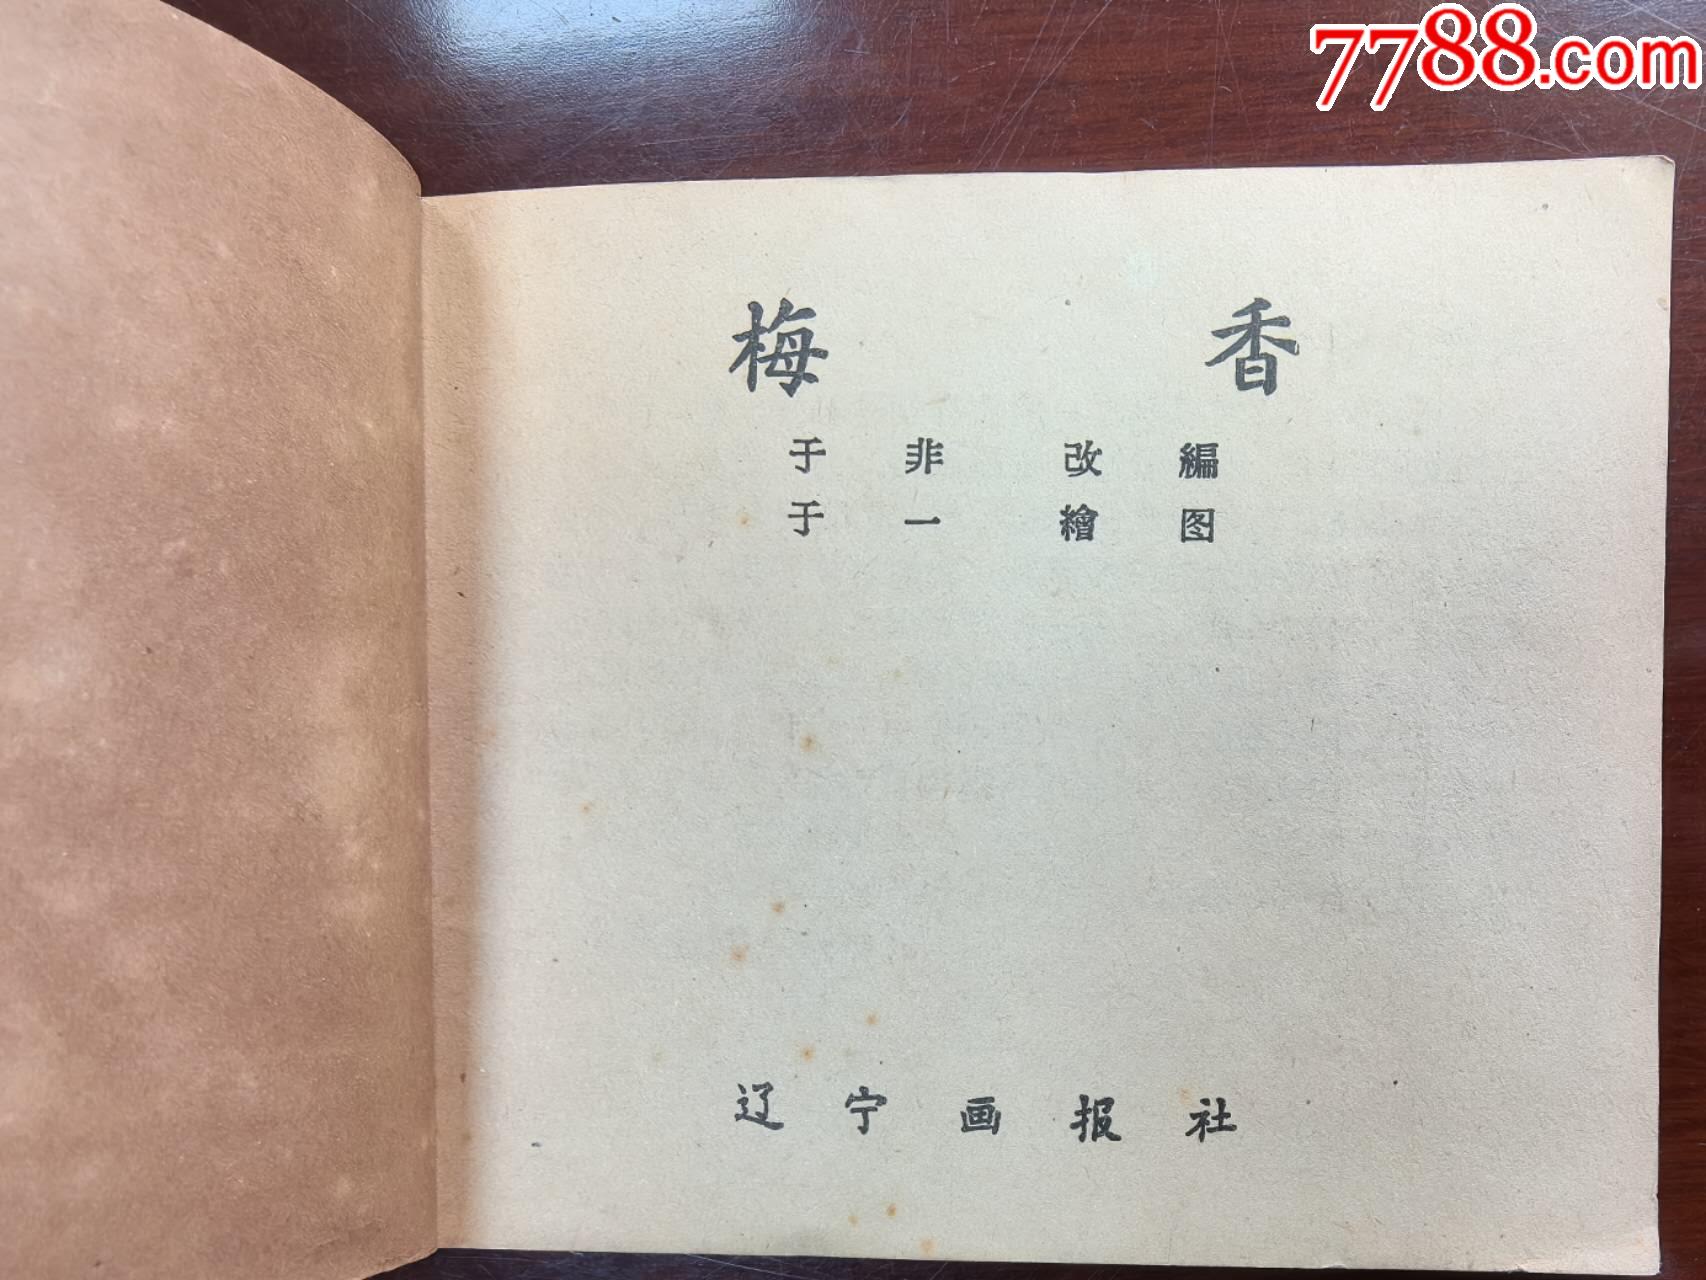 7788.com
梅 香
于 非 改 編
于 一 繪 图
辽 宁 画 报 社